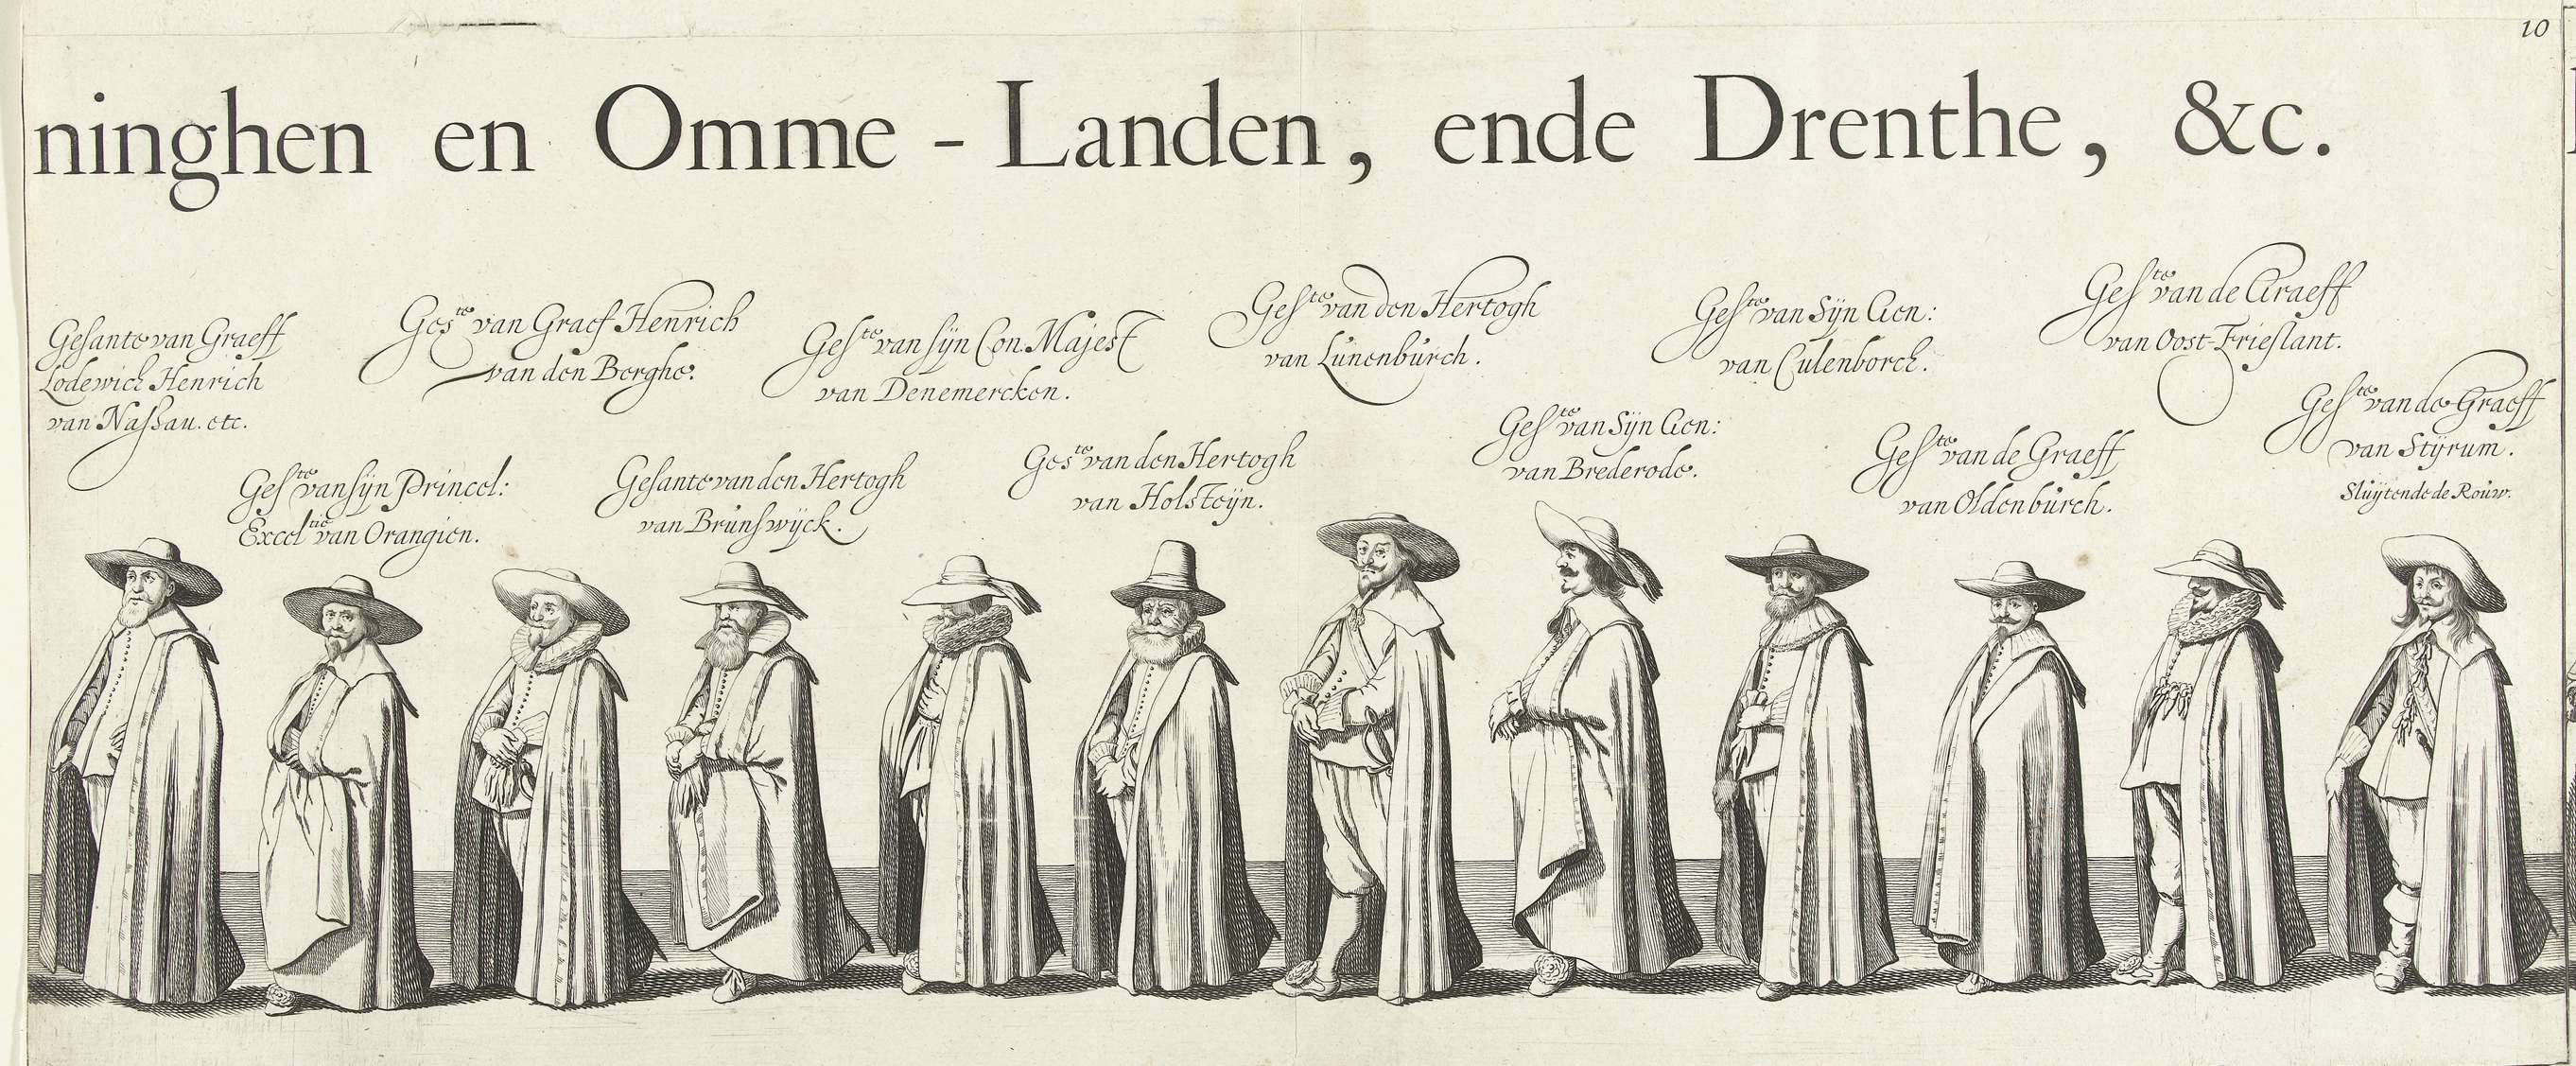 10
ninghen en Omme - Landen, ende Drenthe, &c.
Gesante van Graeff
Lodewich Henrich
van Nassau. etc.
Ges^te van sijn Princel:
Excel^tie van Orangien.
Ges^te van Graef Henrich
van den Berghe.
Gesante van den Hertogh
van Brunswijck.
Ges^te van sijn Con. Majest
van Denemercken.
Ges^te van den Hertogh
van Holsteijn.
Ges^te van den Hertogh
van Lunenburch.
Ges^te van Sijn Gen:
van Brederode.
Ges^te van Sijn Gen:
van Culenborch.
Ges^te van de Graeff
van Oldenburch.
Ges^te van de Graeff
van Oost-Frieslant.
Ges^te van de Graeff
van Styrum.
Sluijtende de Rouw.